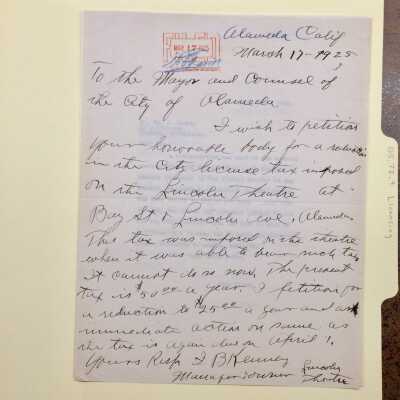 Alameda Calif
March 17 - 1925
MAR 17 1925
To the Mayor and Counsel of
the City of Alameda
I wish to petition
your honorable body for a reduction
in the City license tax imposed
on the Lincoln Theatre at
Bay St & Lincoln Ave, Alameda
This tax was imposed on the theatre
when it was able to bear such tax
it cannot do so now. The present
tax is $50.00 a year. I petition for
a reduction to $25.00 a year and ask
immediate action on same as
the tax is again due on April 1,
Yours Resp. J B Kenney
Manager & owner Lincoln
Theatre
Licensing